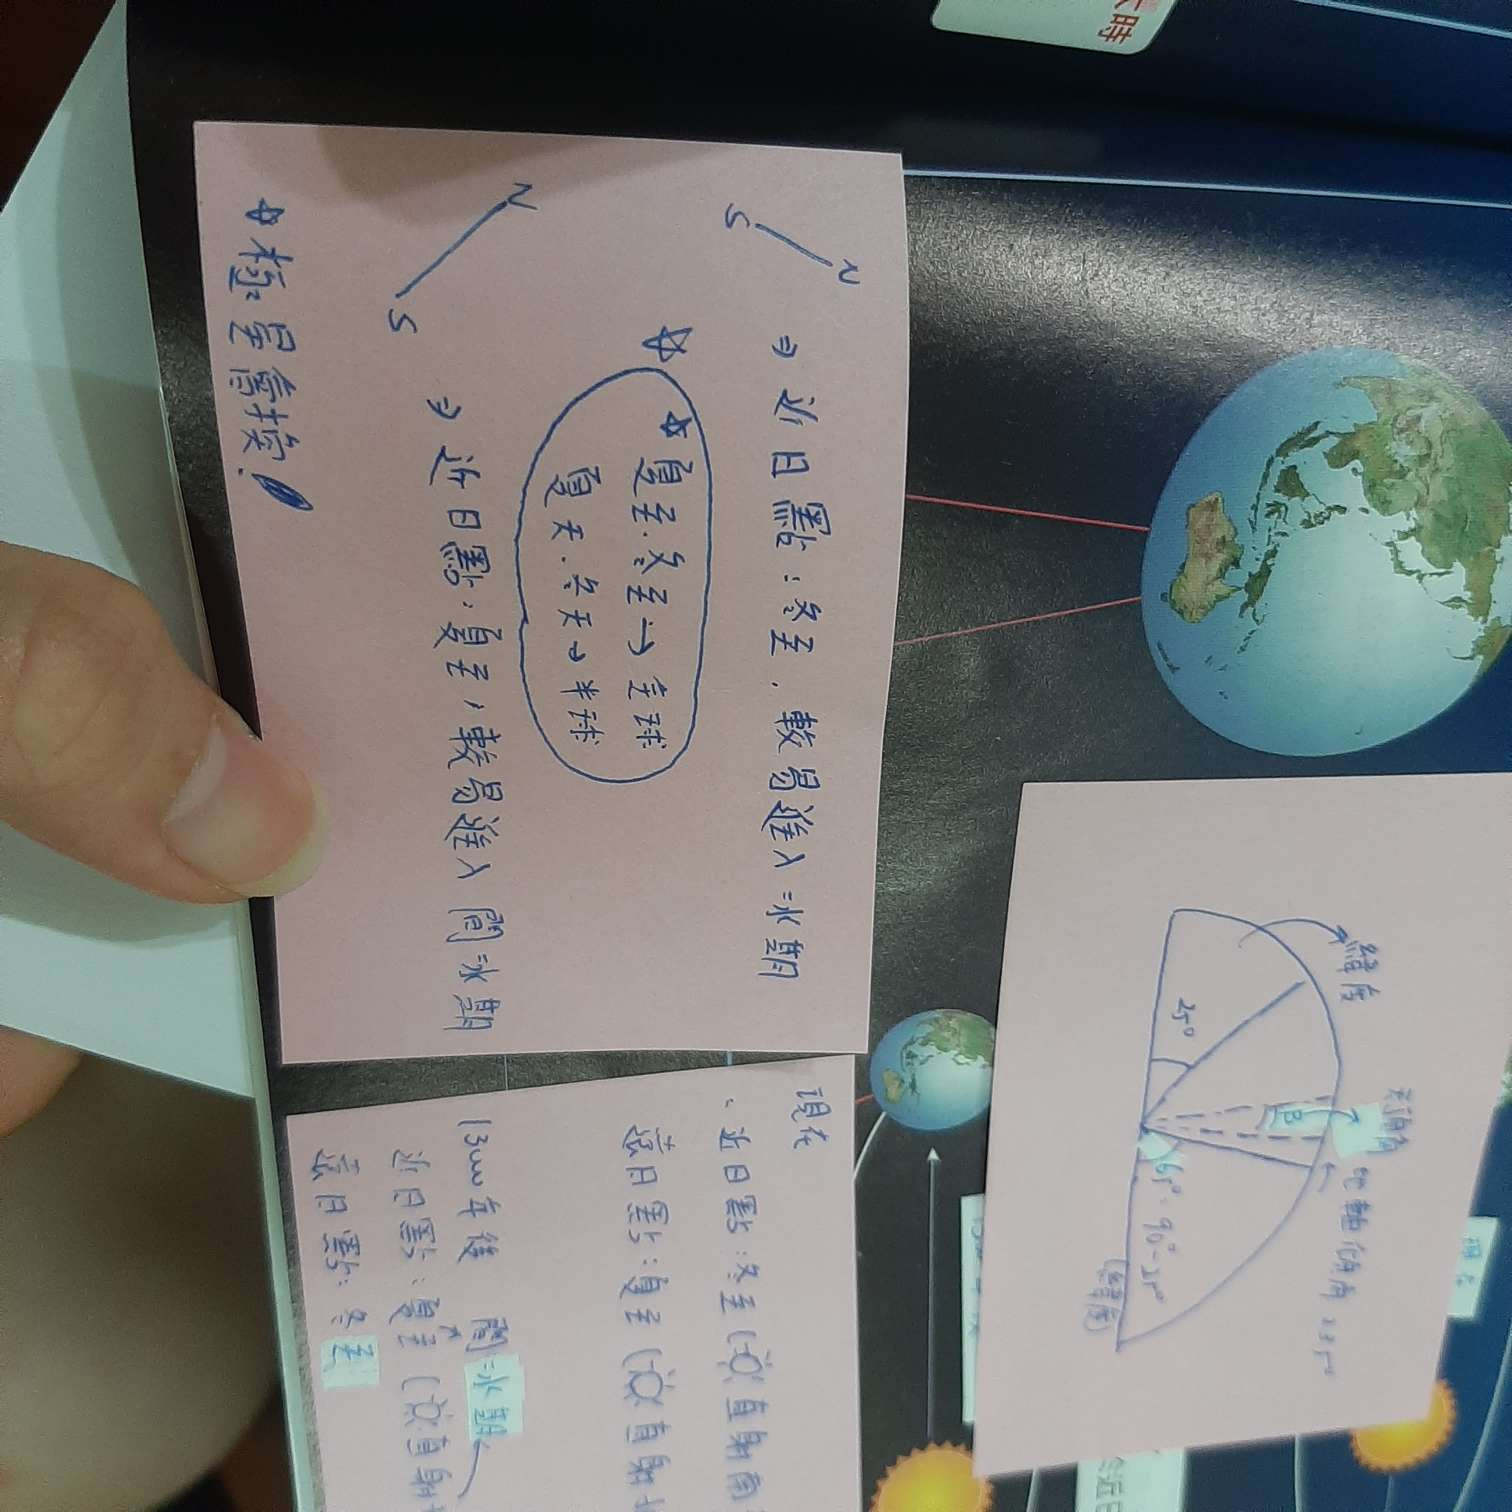 N
S
⇒ 近日點:冬至,較易進入冰期
☆ ☆夏至.冬至→全球
夏天.冬天→半球
N
S
⇒ 近日點,夏至,較易進入間冰期
☆極星會換!
緯度
天頂角
地軸傾角23.5°
25°
B
65°=90°-25°
(緯度)
現在
近日點:冬至(直射南
遠日點:夏至(直射北
13000年後 間冰期
近日點:夏至(直射
遠日點:冬至
大時
近日